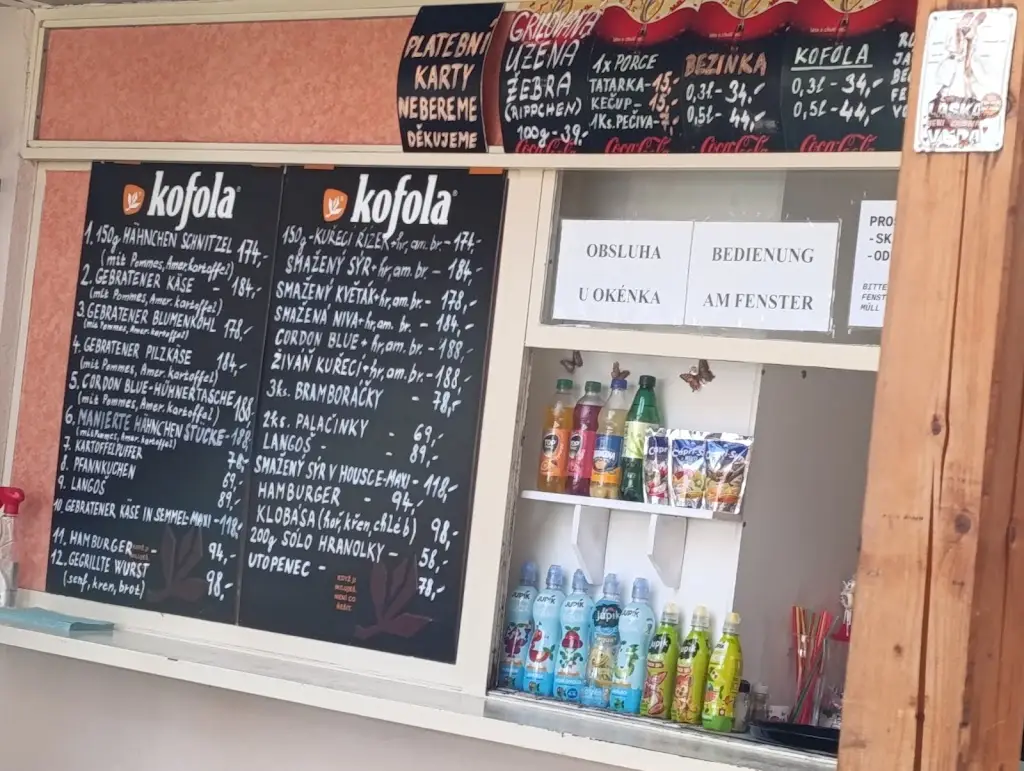 PLATEBNÍ
KARTY
NEBEREME
DĚKUJEME
GRILOVANÁ
UZENÁ
ŽEBRA
(RIPPCHEN)
100g-39,-
Coca-Cola
1x PORCE
TATARKA-15,-
KEČUP-15,-
1Ks.PEČIVA-7,-
BEZINKA
0,3l-34,-
0,5l-44,-
Coca-Cola
KOFOLA
0,3l-34,-
0,5l-44,-
Coca-Cola
LÁSKA
VĚDA
kofola
1. 150g HÄHNCHEN SCHNITZEL 174,-
(mit Pommes, Amer.kartoffel)
2. GEBRATENER KÄSE - 184,-
(mit Pommes, Amer.kartoffel)
3. GEBRATENER BLUMENKOHL 178,-
(mit Pommes, Amer.kartoffel)
4. GEBRATENER PILZKÄSE 184,-
(mit Pommes, Amer.kartoffel)
5. CORDON BLUE-HÜHNERTASCHE 188,-
(mit Pommes, Amer.kartoffel)
6. MANIERTE HÄHNCHEN STÜCKE-188,-
(mit Pommes, Amer.kartoffel)
7. KARTOFFELPUFFER 78,-
8. PFANNKUCHEN 69,-
9. LANGOŠ 89,-
10. GEBRATENER KÄSE IN SEMMEL-MAXI-118,-
11. HAMBURGER 94,-
12. GEGRILLTE WURST
(senf, kren, brot) 98,-
kofola
150g-KUŘECÍ ŘÍZEK+hr,am.br.-174,-
SMAŽENÝ SÝR+hr,am.br. - 184,-
SMAŽENÝ KVĚTÁK+hr,am.br. - 178,-
SMAŽENÁ NIVA+hr,am.br. - 184,-
CORDON BLUE+hr,am.br. - 188,-
ŽIVÁŇ KUŘECÍ+hr,am.br.-188,-
3ks. BRAMBORÁČKY - 78,-
2ks. PALAČINKY - 69,-
LANGOŠ - 89,-
SMAŽENÝ SÝR V HOUSCE-MAXI-118,-
HAMBURGER - 94,-
KLOBÁSA (hoř, křen, chléb) 98,-
200g SÓLO HRANOLKY - 58,-
UTOPENEC - 78,-
KDYŽ JI
MILUJEŠ,
NENÍ CO
ŘEŠIT.
OBSLUHA
U OKÉNKA
BEDIENUNG
AM FENSTER
BITTE
FENST
MÜLL
Capri-Sun
Jupík
Jupík
Jupík
Jupík
Jupík